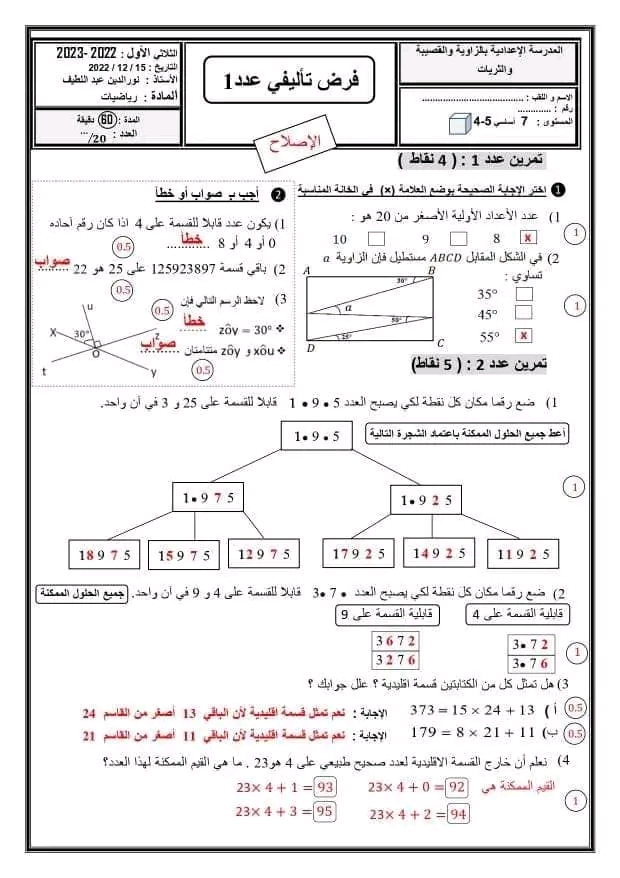 المدرسة الإعدادية بالزاوية والقصيبة والثريات
الاسم و اللقب : ..............................
رقم : ............
المستوى : 7 أساسي 5-4
فرض تأليفي عدد1
الثلاثي الأول : 2022 -2023
التاريخ : 15 / 12 / 2022
الأستاذ : نورالدين عبد اللطيف
المادة : رياضيات
المدة : 60 دقيقة
العدد : .../20
الإصلاح
تمرين عدد 1 : ( 4 نقاط )
1 اختر الإجابة الصحيحة بوضع العلامة (×) في الخانة المناسبة
1) عدد الأعداد الأولية الأصغر من 20 هو :
8 x 9 10
1
2) في الشكل المقابل ABCD مستطيل فإن الزاوية a تساوي :
35°
45°
55° x
1
A B
30°
a
50°
25°
D C
2 أجب ب صواب أو خطأ
1) يكون عدد قابلا للقسمة على 4 اذا كان رقم آحاده
0 أو 4 أو 8 خطأ
0.5
2) باقي قسمة 125923897 على 25 هو 22 صواب
0.5
3) لاحظ الرسم التالي فإن
0.5
❖ zôy = 30° خطأ
❖ xôu و zôy متتامتان صواب
0.5
u
x 30° z
o
t y
تمرين عدد 2 : ( 5 نقاط)
1) ضع رقما مكان كل نقطة لكي يصبح العدد 1 • 9 • 5 قابلا للقسمة على 25 و 3 في آن واحد.
أعط جميع الحلول الممكنة باعتماد الشجرة التالية
1 • 9 • 5
1
1 • 9 7 5 1 • 9 2 5
1 8 9 7 5 1 5 9 7 5 1 2 9 7 5 1 7 9 2 5 1 4 9 2 5 1 1 9 2 5
2) ضع رقما مكان كل نقطة لكي يصبح العدد 3• 7 • قابلا للقسمة على 4 و 9 في آن واحد. جميع الحلول الممكنة
قابلية القسمة على 4 قابلية القسمة على 9
3• 7 2 3 6 7 2
3• 7 6 3 2 7 6
1
3) هل تمثل كل من الكتابتين قسمة اقليدية ؟ علل جوابك ؟
أ ) 373 = 15 × 24 + 13 الإجابة : نعم تمثل قسمة اقليدية لأن الباقي 13 أصغر من القاسم 24
0.5
ب) 179 = 8 × 21 + 11 الإجابة : نعم تمثل قسمة اقليدية لأن الباقي 11 أصغر من القاسم 21
0.5
4) نعلم أن خارج القسمة الاقليدية لعدد صحيح طبيعي على 4 هو23 . ما هي القيم الممكنة لهذا العدد؟
القيم الممكنة هي 23× 4 + 0 = 92 23× 4 + 1 = 93
23× 4 + 2 = 94 23× 4 + 3 = 95
1